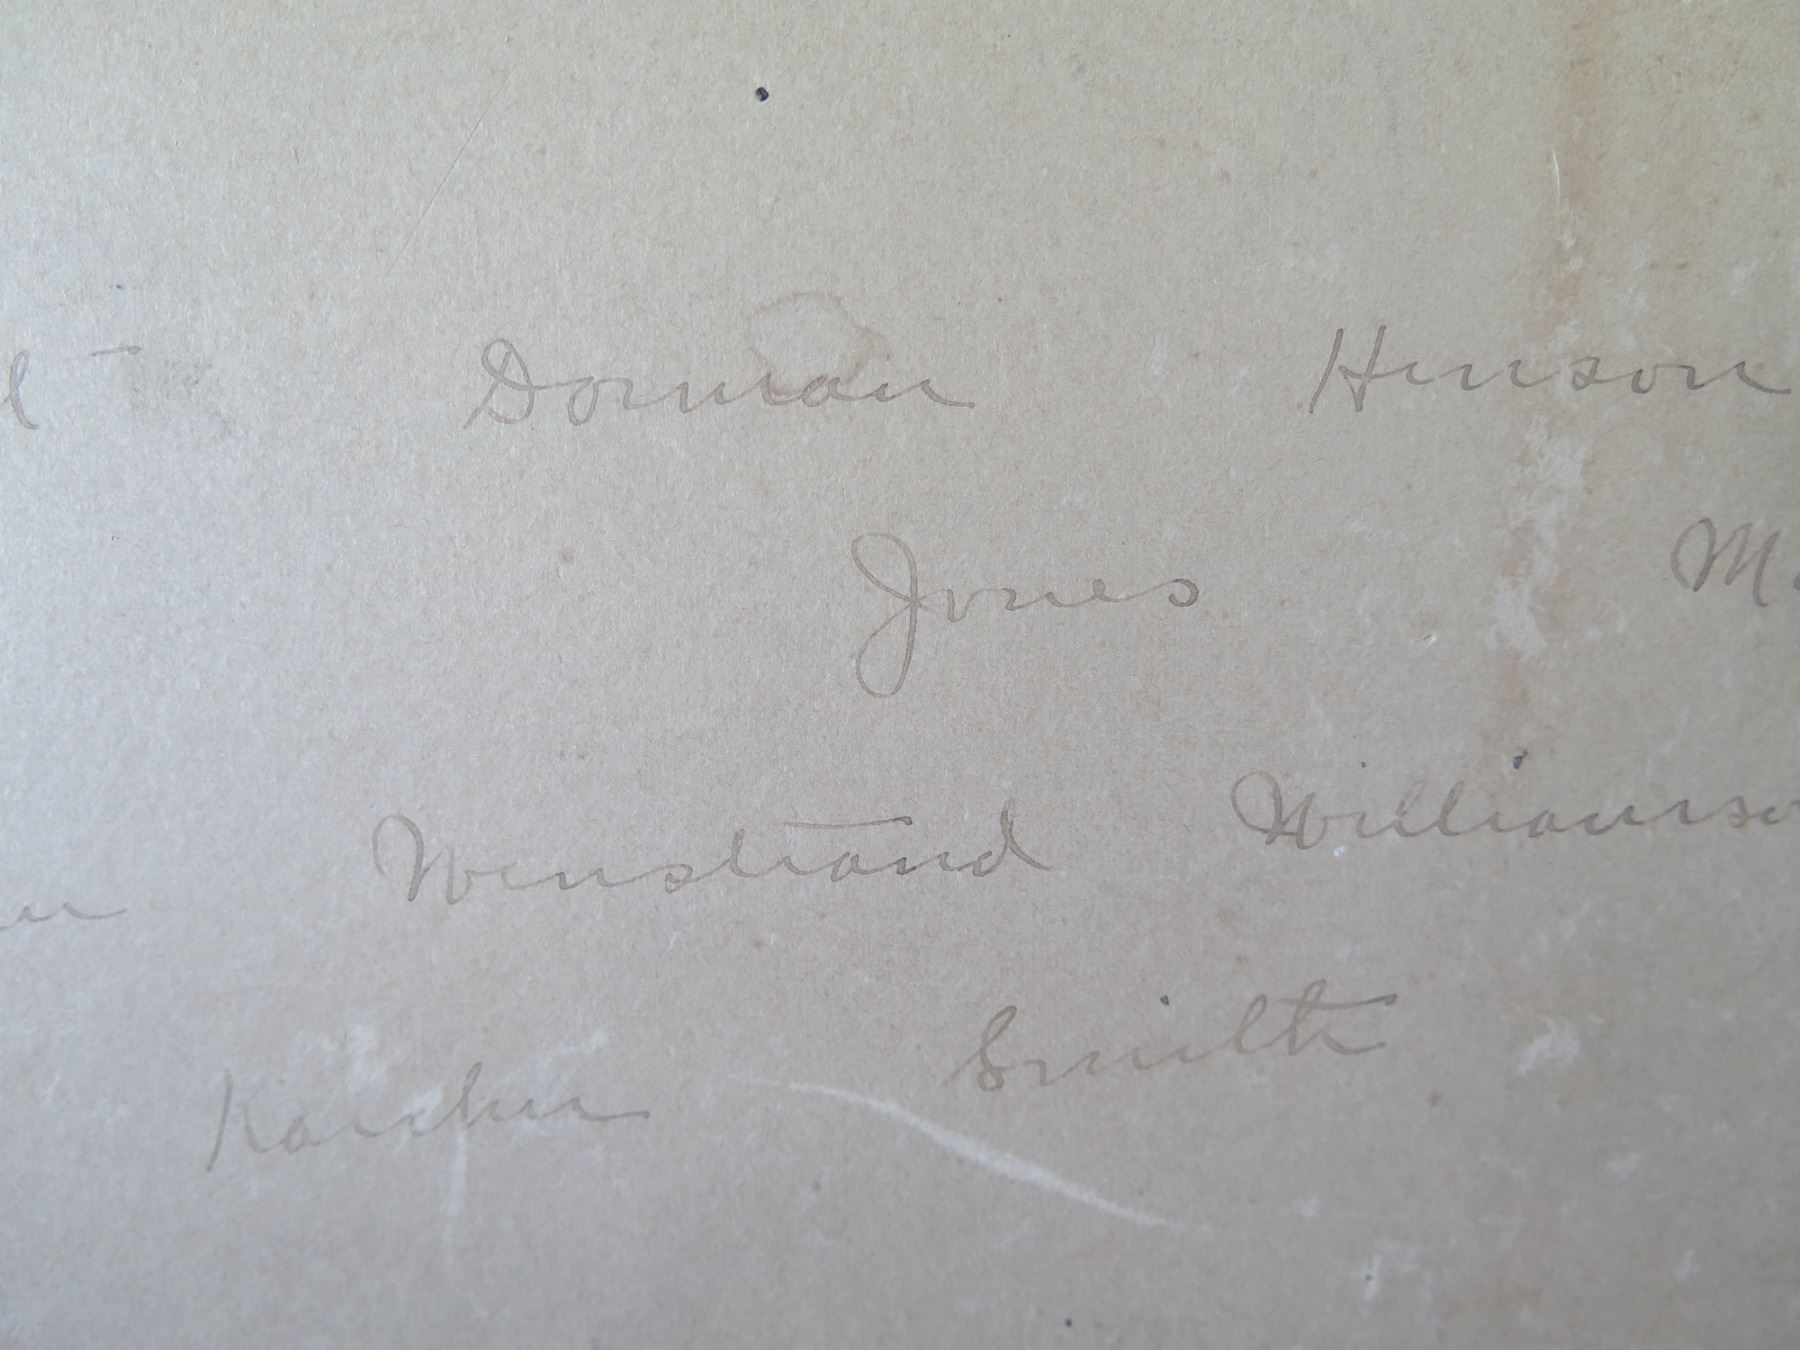 Dorman Hinson
Jones
Winstrand Williamso
Karcher Smith